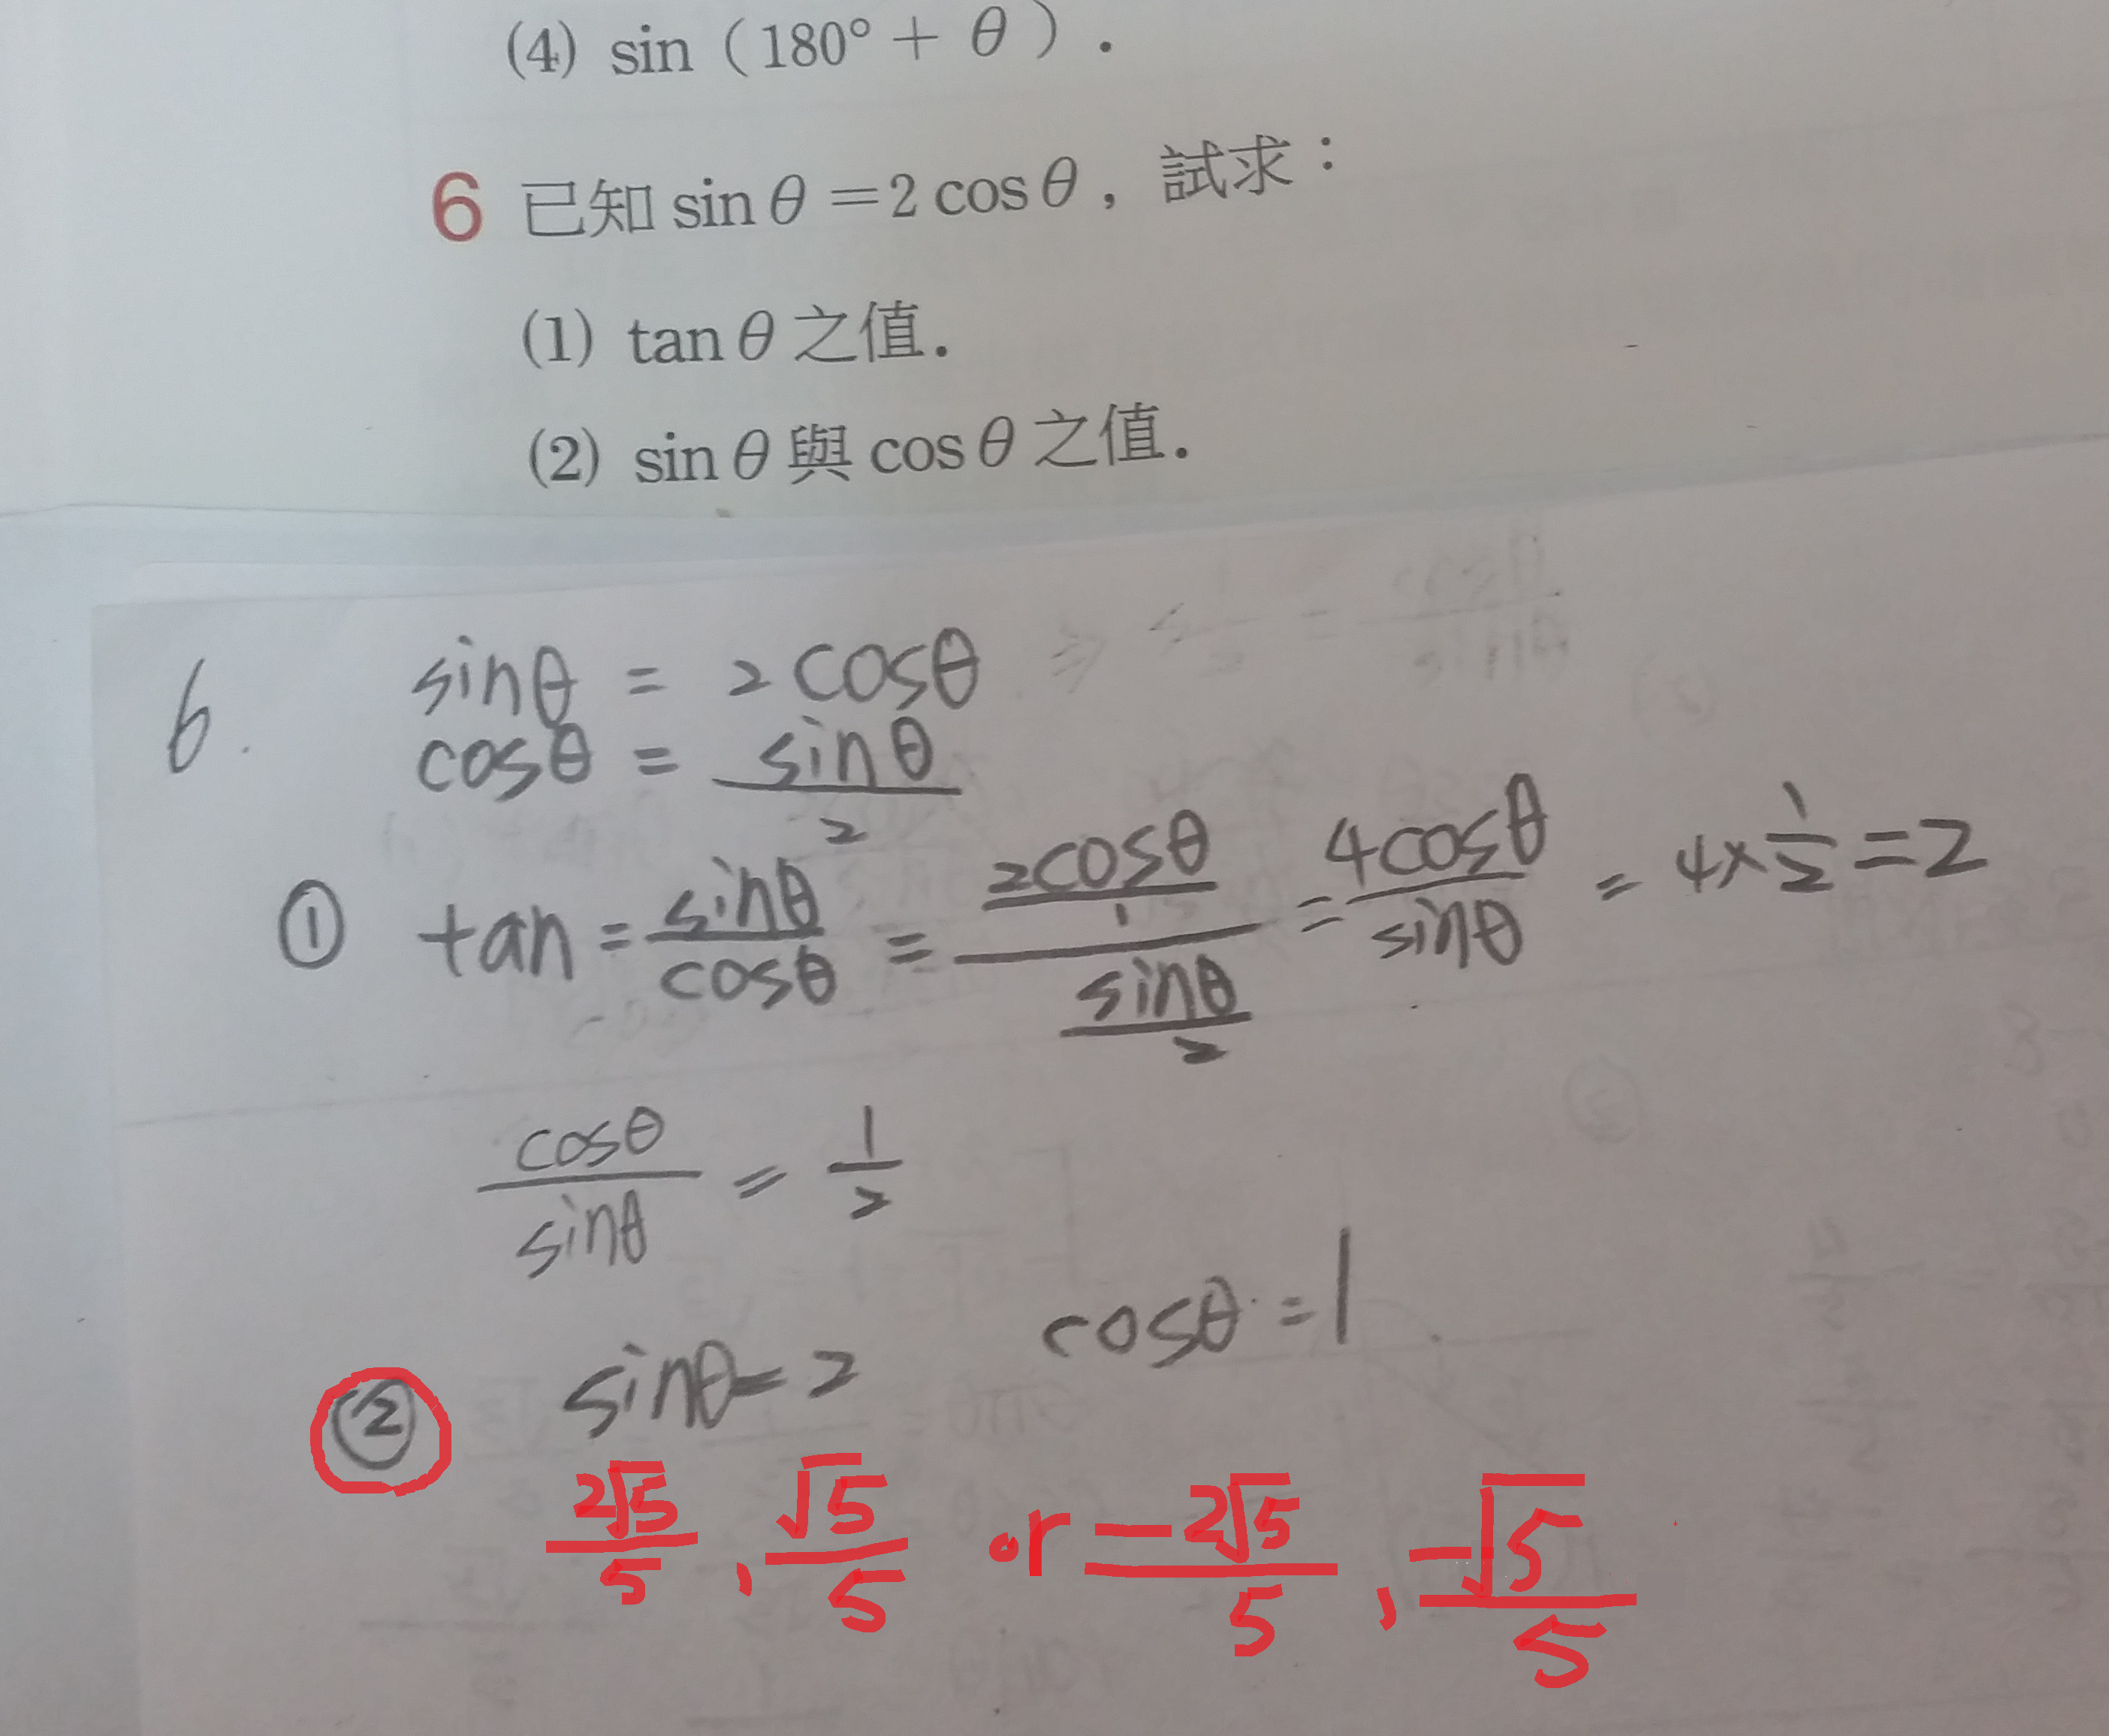 (4) sin（180° + θ）.
6 已知 sin θ =2 cos θ，試求：
(1) tan θ 之值.
(2) sin θ 與 cos θ 之值.
6. sinθ = 2cosθ
cosθ = sinθ/2
① tan = sinθ/cosθ = (2cosθ/1)/(sinθ/2) = 4cosθ/sinθ = 4×1/2 = 2
cosθ/sinθ = 1/2
② sinθ=2 cosθ=1
2√5/5 , √5/5 or -2√5/5 , -√5/5